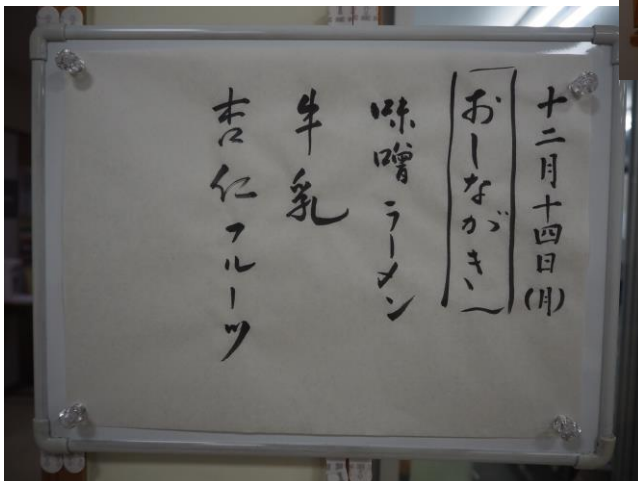 十二月十四日(月)
おしながき
味噌ラーメン
牛乳
杏仁フルーツ